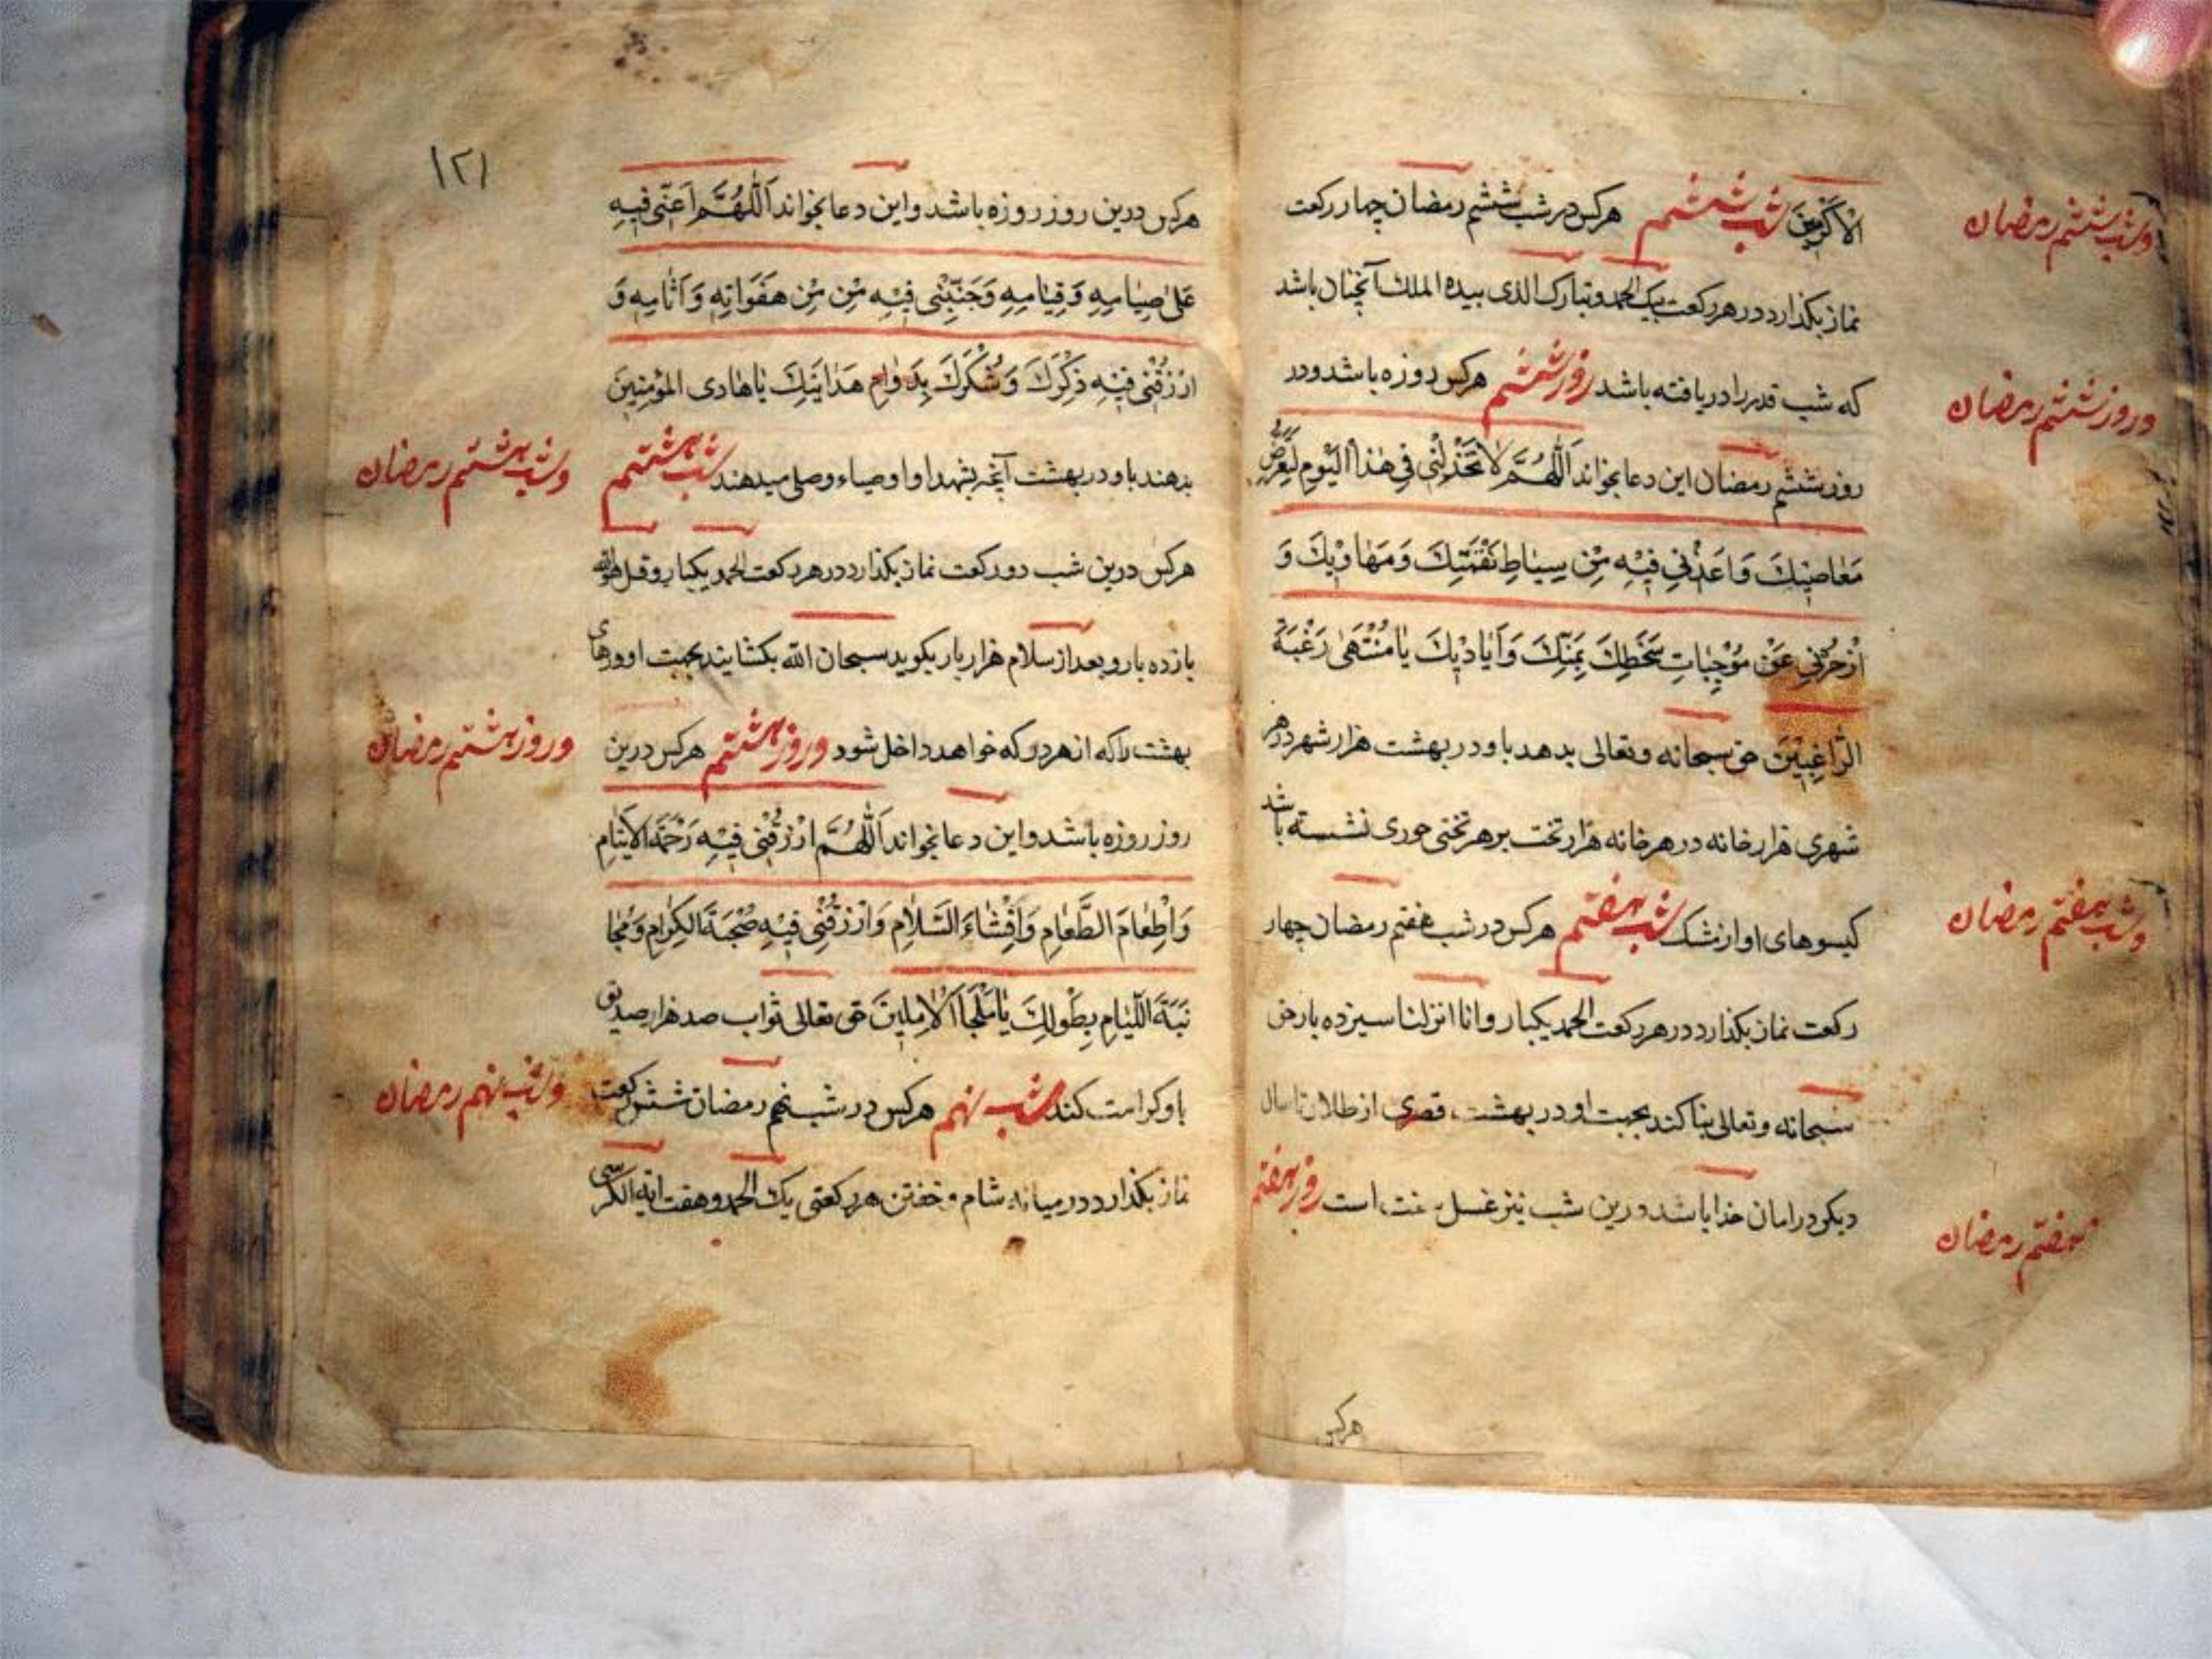 الاَكْرَمينَ شب ششم هرکس در شب ششم رمضان چهار رکعت
نماز بکذارد در هر رکعت یک الحمد و تبارک الذی بیده الملک آنچنان باشد
که شب قدر را دریافته باشد روز ششم هرکس روزه باشد و در
روز ششم رمضان این دعا بخواند اَللّهُمَّ لاٰ تَخْذُلْنی فی هٰذَا الْیَومِ لِتَعَرُّضِ
مَعٰاصیٖكَ وَ اَعِذْنی فیٖهِ مِنْ سِیٰاطِ نَقْمَتِكَ وَ مَهٰاویٖكَ وَ
اَزْحِزْنی عَنْ مُوْجِبٰاتِ سَخَطِكَ بِمَنِّكَ وَ اَیٰادیٖكَ یٰا مُنْتَهیٰ رَغْبَةِ
الرّٰاغِبیٖنَ حق سبحانه و تعالی بدهد باو در بهشت هزار شهر در هر
شهری هزار خانه در هر خانه هزار تخت بر هر تختی حوری نشسته باشد
کیسوهای او از مشک شب هفتم هرکس در شب هفتم رمضان چهار
رکعت نماز بکذارد در هر رکعت الحمد یکبار و انا انزلنا سیزده بار حق
سبحانه و تعالی بنا کند بجهت او در بهشت قصری از طلا و تا سال
دیکر در امان خدا باشد و درین شب نیز غسل سنت است روز هفتم
هرکس
وشب ششم رمضان
وروز ششم رمضان
وشب هفتم رمضان
هفتم رمضان
۱۲۱
هرکس درین روز روزه باشد و این دعا بخواند اَللّهُمَّ اَعِنّی فیٖهِ
عَلیٰ صِیٰامِهِ وَ قِیٰامِهِ وَ جَنِّبْنی فیٖهِ مِنْ مِنْ هَفَوٰاتِهِ وَ اٰثٰامِهِ وَ
ارْزُقْنی فیٖهِ ذِكْرَكَ وَ شُكْرَكَ بِدَوٰامِ هَدٰایَتِكَ یٰا هٰادی المُؤْمِنینَ
بدهند باو در بهشت آنچه بشهدا و اوصیاء وصلی میدهند شب هشتم
هرکس درین شب دو رکعت نماز بکذارد در هر رکعت الحمد یکبار و قل هو الله
یازده بار و بعد از سلام هزار بار بکوید سبحان الله بکشایند بجهت او درهای
بهشت را که از هر در که خواهد داخل شود وروز هشتم هرکس درین
روز روزه باشد و این دعا بخواند اَللّهُمَّ ارْزُقْنی فیٖهِ رَحْمَةَ الاَیتٰامِ
وَ اِطْعٰامَ الطَّعٰامِ وَ اِفْشٰاءَ السَّلاٰمِ وَ ارْزُقْنی فیٖهِ صُحْبَةَ الكِرٰامِ وَ مُجٰا
نَبَةَ اللِّئٰامِ بِطَولِكَ یٰا مَلْجَأَ الاٰمِلینَ حق تعالی ثواب صد هزار صدیق
باو کرامت کند شب نهم هرکس در شب نهم رمضان شش رکعت
نماز بکذارد در میانه شام و خفتن هر رکعتی یک الحمد و هفت ایة الکرسی
وشب هشتم رمضان
وروز هشتم رمضان
وشب نهم رمضان